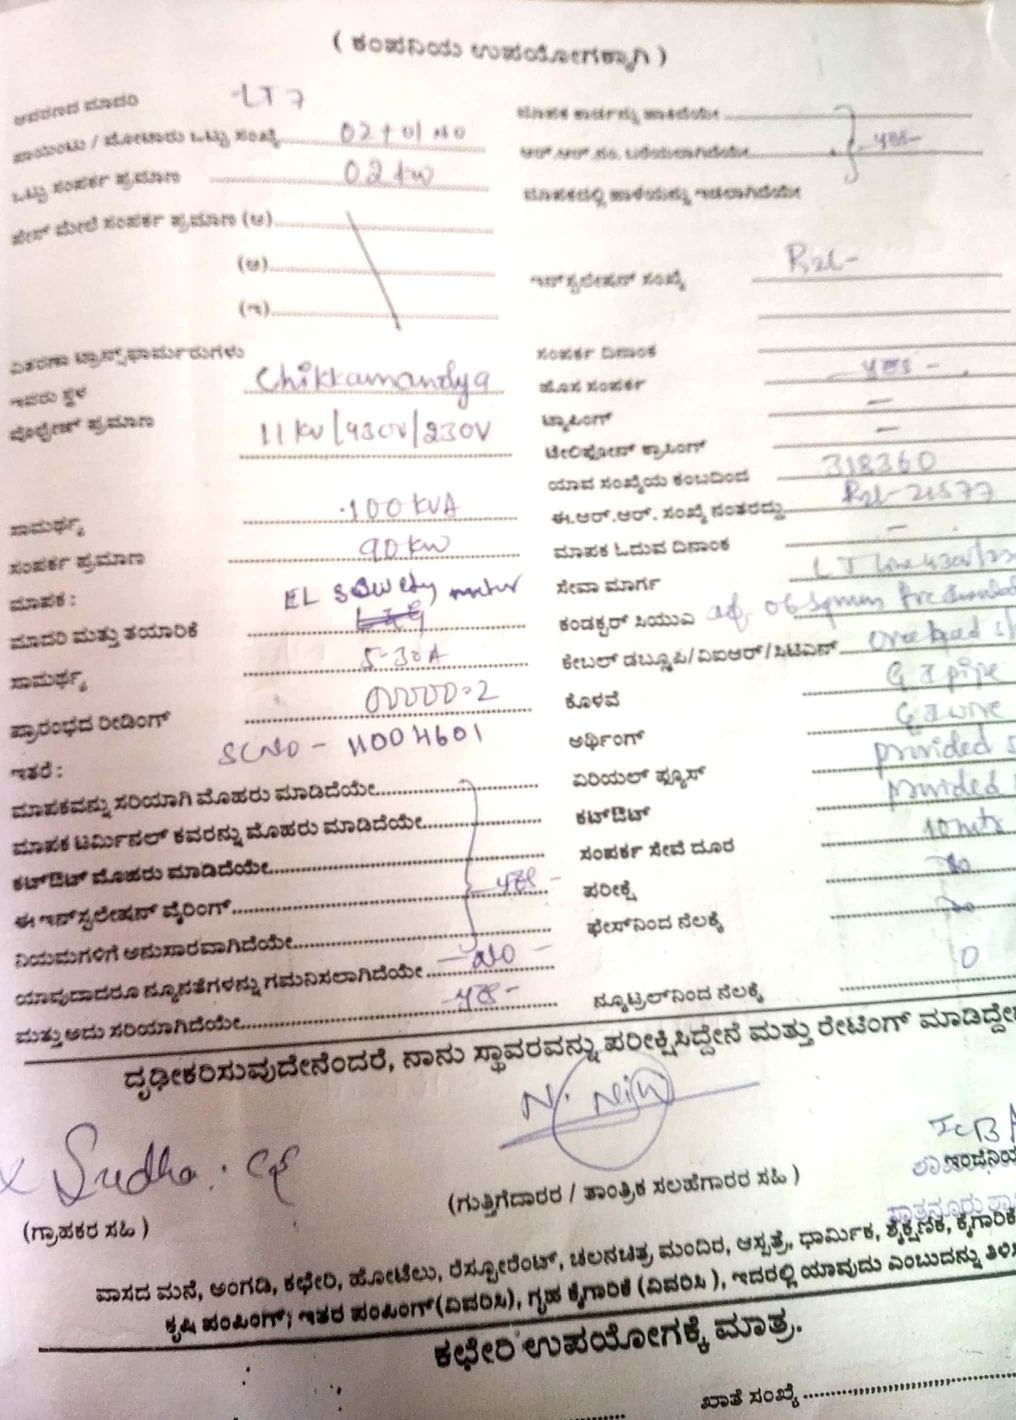 ( ಕಂಪನಿಯ ಉಪಯೋಗಕ್ಕಾಗಿ )
ಆವರಣದ ಮಾದರಿ LT 7
ಪಾಯಿಂಟು / ಮೋಟಾರು ಒಟ್ಟು ಸಂಖ್ಯೆ
ಒಟ್ಟು ಸಂಪರ್ಕ ಪ್ರಮಾಣ 02 kw
ಫೇಸ್ ಮೇಲೆ ಸಂಪರ್ಕ ಪ್ರಮಾಣ (ಅ)
(ಆ)
(ಇ)
ವಿತರಣಾ ಟ್ರಾನ್ಸ್‌ಫಾರ್ಮರುಗಳು
ಇವರು ಸ್ಥಳ Chikkamandya
ವೋಲ್ಟೇಜ್ ಪ್ರಮಾಣ 11 KV/430V/230V
ಸಾಮರ್ಥ್ಯ 100 KVA
ಸಂಪರ್ಕ ಪ್ರಮಾಣ 90 kw
ಮಾಪಕ :
ಮಾದರಿ ಮತ್ತು ತಯಾರಿಕೆ
ಸಾಮರ್ಥ್ಯ 5-30A
ಪ್ರಾರಂಭದ ರೀಡಿಂಗ್ 00000.2
ಇತರೆ : SLNO - 11004601
ಮಾಪಕವನ್ನು ಸರಿಯಾಗಿ ಮೊಹರು ಮಾಡಿದೆಯೇ
ಮಾಪಕ ಟರ್ಮಿನಲ್ ಕವರನ್ನು ಮೊಹರು ಮಾಡಿದೆಯೇ
ಕಟ್‌ಔಟ್ ಮೊಹರು ಮಾಡಿದೆಯೇ
ಈ ಇನ್‌ಸ್ಟಲೇಷನ್ ವೈರಿಂಗ್ yes -
ನಿಯಮಗಳಿಗೆ ಅನುಸಾರವಾಗಿದೆಯೇ
ಯಾವುದಾದರೂ ನ್ಯೂನತೆಗಳನ್ನು ಗಮನಿಸಲಾಗಿದೆಯೇ - NO -
ಮತ್ತು ಅದು ಸರಿಯಾಗಿದೆಯೇ - yes -
ಮಾಪಕ ಕಾರ್ಡನ್ನು ಹಾಕಿದೆಯೇ
ಆರ್.ಆರ್.ನಂ. ಬರೆಯಲಾಗಿದೆಯೇ - yes -
ಮಾಪಕದಲ್ಲಿ ಹಾಳೆಯನ್ನು ಇಡಲಾಗಿದೆಯೇ
ಇನ್‌ಸ್ಟಲೇಷನ್ ಸಂಖ್ಯೆ
ಸಂಪರ್ಕ ದಿನಾಂಕ
ಹೊಸ ಸಂಪರ್ಕ - yes -
ಟ್ಯಾಪಿಂಗ್ -
ಟೆಲಿಫೋನ್ ಕ್ರಾಸಿಂಗ್ -
ಯಾವ ಸಂಖ್ಯೆಯ ಕಂಬದಿಂದ 318360
ಈ.ಆರ್.ಆರ್. ಸಂಖ್ಯೆ ನಂತರದ್ದು
ಮಾಪಕ ಓದುವ ದಿನಾಂಕ -
ಸೇವಾ ಮಾರ್ಗ LT line
ಕಂಡಕ್ಟರ್ ಸಿಯುಎ
ಕೇಬಲ್ ಡಬ್ಲ್ಯೂಪಿ/ವಿಐಆರ್/ಸಿಟಿಎಸ್
ಕೊಳವೆ G I pipe
ಅರ್ಥಿಂಗ್ G I wire
ಏರಿಯಲ್ ಫ್ಯೂಸ್ provided
ಕಟ್‌ಔಟ್ provided
ಸಂಪರ್ಕ ಸೇವೆ ದೂರ 10 mtr
ಪರೀಕ್ಷೆ
ಫೇಸ್‌ನಿಂದ ನೆಲಕ್ಕೆ
ನ್ಯೂಟ್ರಲ್‌ನಿಂದ ನೆಲಕ್ಕೆ 0
ದೃಢೀಕರಿಸುವುದೇನೆಂದರೆ, ನಾನು ಸ್ಥಾವರವನ್ನು ಪರೀಕ್ಷಿಸಿದ್ದೇನೆ ಮತ್ತು ರೇಟಿಂಗ್ ಮಾಡಿದ್ದೇನೆ
Sudha
(ಗ್ರಾಹಕರ ಸಹಿ ) (ಗುತ್ತಿಗೆದಾರರ / ತಾಂತ್ರಿಕ ಸಲಹೆಗಾರರ ಸಹಿ )
ವಾಸದ ಮನೆ, ಅಂಗಡಿ, ಕಛೇರಿ, ಹೋಟೆಲು, ರೆಸ್ಟೋರೆಂಟ್, ಚಲನಚಿತ್ರ ಮಂದಿರ, ಆಸ್ಪತ್ರೆ, ಧಾರ್ಮಿಕ, ಶೈಕ್ಷಣಿಕ, ಕೈಗಾರಿಕೆ
ಕೃಷಿ ಪಂಪಿಂಗ್, ಇತರ ಪಂಪಿಂಗ್(ವಿವರಿಸಿ), ಗೃಹ ಕೈಗಾರಿಕೆ (ವಿವರಿಸಿ ), ಇದರಲ್ಲಿ ಯಾವುದು ಎಂಬುದನ್ನು
ಕಛೇರಿ ಉಪಯೋಗಕ್ಕೆ ಮಾತ್ರ.
ಖಾತೆ ಸಂಖ್ಯೆ